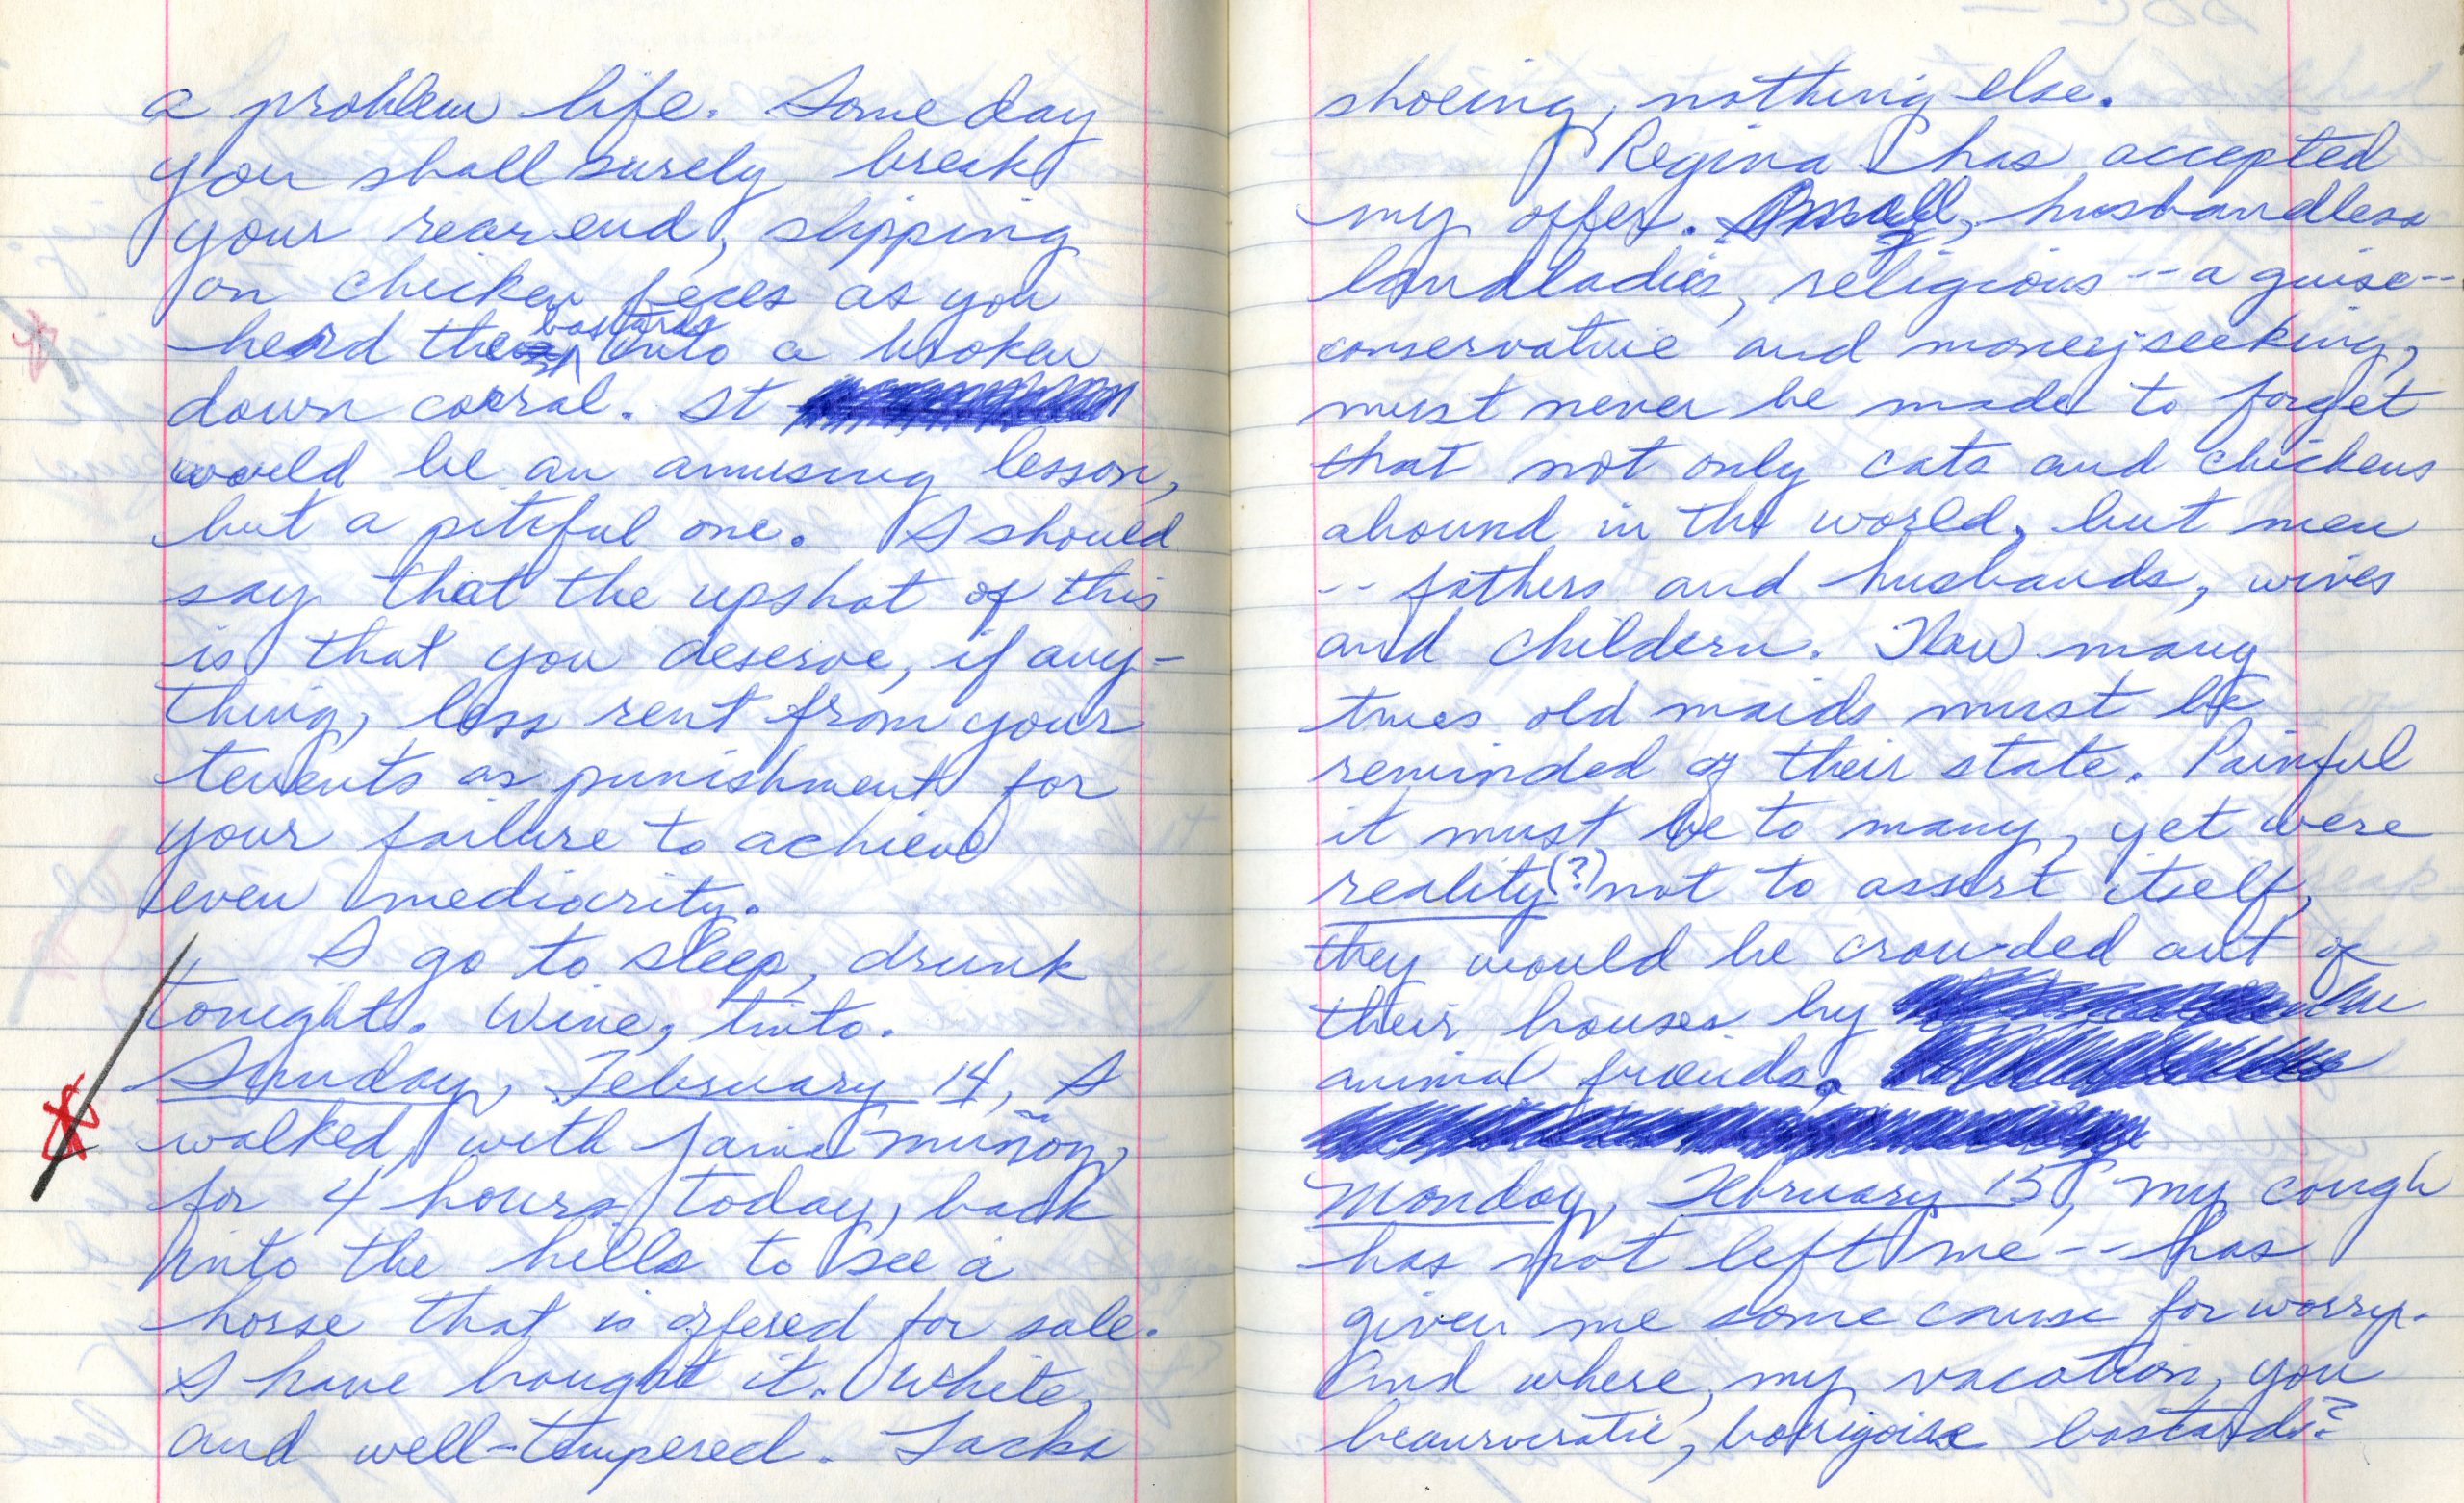 a problem life. Some day
you shall surely break
your rear end, slipping
on chicken feces as you
heard the bastards into a broken
down corral. It
would be an amusing lesson,
but a pitiful one. I should
say that the upshot of this
is that you deserve, if any-
thing, less rent from your
tenents as punishment for
your failure to achieve
even mediocrity.
I go to sleep, drunk
tonight. Wine, tinto.
Sunday, February 14, I
walked, with Jaime Muñoz,
for 4 hours today, back
into the hills to see a
horse that is offered for sale.
I have bought it. White,
and well-tempered. Lacks
shoeing, nothing else.
Regina has accepted
my offer. Small, husbandless
landladies, religious -- a guise --
conservative and money seeking,
must never be made to forget
that not only cats and chickens
abound in the world, but men
-- fathers and husbands, wives
and childern. How many
times old maids must be
reminded of their state. Painful
it must be to many, yet were
reality (?) not to assert itself,
they would be crowded out of
their houses by
animal friends.
Monday, February 15, my cough
has not left me -- has
given me some cause for worry.
And where, my vacation, you
beaurocratic, bourigoise bastards?